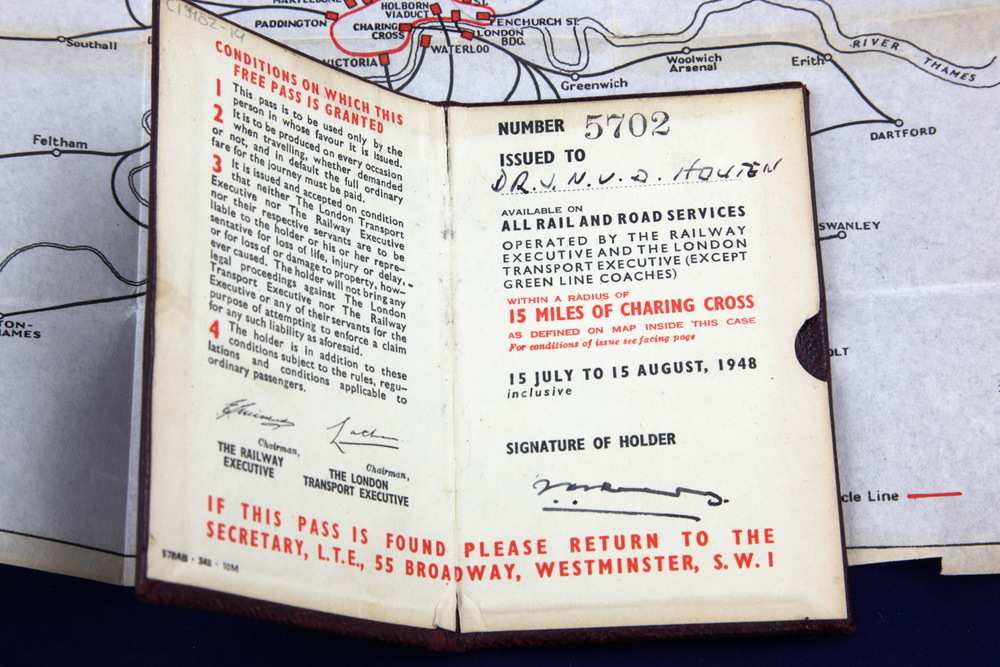 C19182-19
HOLBORN
VIADUCT
PADDINGTON
CHARING
CROSS
FENCHURCH ST.
LONDON
BDG.
WATERLOO
VICTORIA
Southall
Greenwich
Woolwich
Arsenal
Erith
RIVER THAMES
DARTFORD
Feltham
SWANLEY
TON-
HAMES
OLT
cle Line
CONDITIONS ON WHICH THIS
FREE PASS IS GRANTED
1 This pass is to be used only by the
person in whose favour it is issued.
2 It is to be produced on every occasion
when travelling, whether demanded
or not, and in default the full ordinary
fare for the journey must be paid.
3 It is issued and accepted on condition
that neither The London Transport
Executive nor The Railway Executive
nor their respective servants are to be
liable to the holder or his or her repre-
sentative for loss of life, injury or delay,
or for loss of or damage to property, how-
ever caused. The holder will not bring any
legal proceedings against The London
Transport Executive nor The Railway
Executive or any of their servants for the
purpose of attempting to enforce a claim
for any such liability as aforesaid.
4 The holder is in addition to these
conditions subject to the rules, regu-
lations and conditions applicable to
ordinary passengers.
Chairman,
THE RAILWAY
EXECUTIVE
Chairman,
THE LONDON
TRANSPORT EXECUTIVE
NUMBER 5702
ISSUED TO
DR. J. N. V. D. HOUTEN
AVAILABLE ON
ALL RAIL AND ROAD SERVICES
OPERATED BY THE RAILWAY
EXECUTIVE AND THE LONDON
TRANSPORT EXECUTIVE (EXCEPT
GREEN LINE COACHES)
WITHIN A RADIUS OF
15 MILES OF CHARING CROSS
AS DEFINED ON MAP INSIDE THIS CASE
For conditions of issue see facing page
15 JULY TO 15 AUGUST, 1948
inclusive
SIGNATURE OF HOLDER
IF THIS PASS IS FOUND PLEASE RETURN TO THE
SECRETARY, L.T.E., 55 BROADWAY, WESTMINSTER, S.W.1